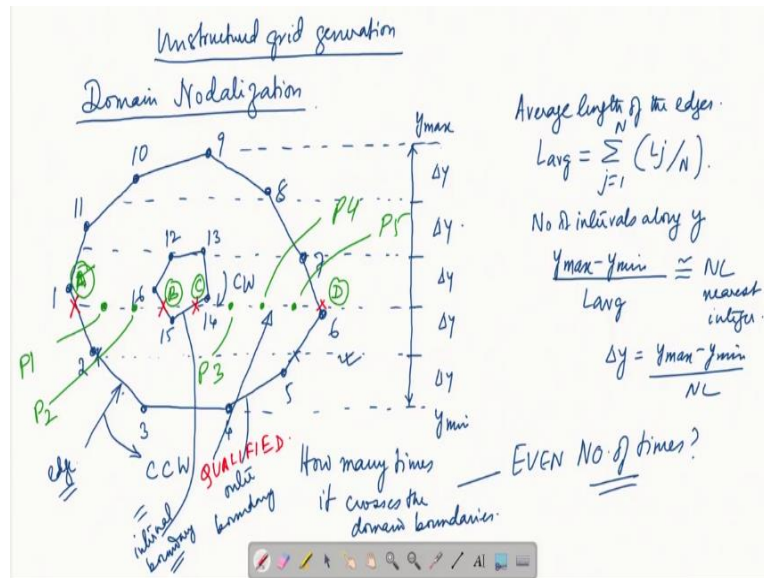 Unstructured grid generation
Domain Nodalization
ymax
9
10
8
11
7
12
13
P4
P5
Δy
Δy
Δy
Δy
Δy
A
B
C
D
CW
1
16
14
15
6
P1
P2
P3
2
5
3
4
ymin
edge
CCW
QUALIFIED
internal
boundary
outer
boundary
How many times
it crosses the
domain boundaries.
EVEN NO. of times?
Average length of the edges.
Lavg = N∑j=1 (Lj/N).
No of intervals along y
ymax-ymin / Lavg ≅ NL
nearest
integer.
Δy = ymax-ymin / NL
A|